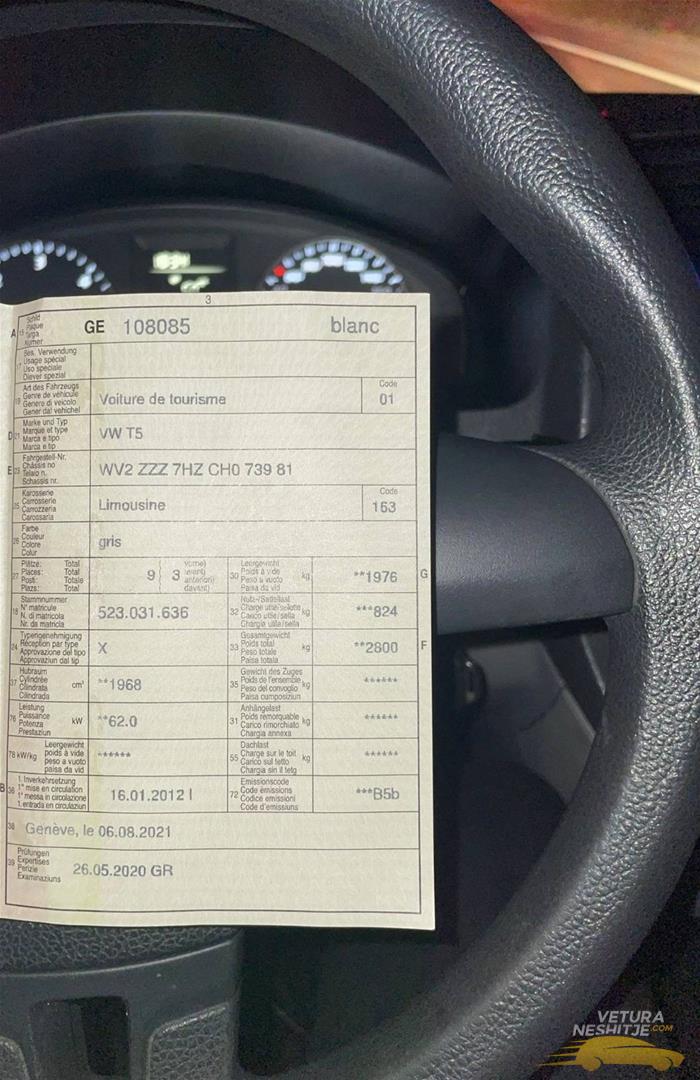 3
A 15 Schild Plaque Targa Numer GE 108085 blanc
17 Bes. Verwendung Usage spécial Uso speciale Diever spezial
19 Art des Fahrzeugs Genre de véhicule Genere di veicolo Gener dal vehichel Voiture de tourisme Code 01
D 21 Marke und Typ Marque et type Marca e tipo Marca e tip VW T5
E 23 Fahrgestell-Nr. Châssis no Telaio n. Schassis nr. WV2 ZZZ 7HZ CH0 739 81
25 Karosserie Carrosserie Carrozzeria Carossaria Limousine Code 163
26 Farbe Couleur Colore Colur gris
27 Plätze: Total Places: Total Posti: Totale Plazs: Total 9 3 vorne) avant) anteriori) davant) 30 Leergewicht Poids à vide Peso a vuoto Paisa da vid kg **1976 G
18 Stammnummer N° matricule N. di matricola Nr. da matricla 523.031.636 32 Nutz-/Sattellast Charge utile/sellette Carico utile/sella Chargia utila/sella kg ***824
24 Typengenehmigung Réception par type Approvazione del tipo Approvaziun dal tip X 33 Gesamtgewicht Poids total Peso totale Paisa totala kg **2800 F
37 Hubraum Cylindrée Cilindrata Cilindrada cm³ **1968 35 Gewicht des Zuges Poids de l'ensemble Peso del convoglio Paisa cumposiziun kg ******
76 Leistung Puissance Potenza Prestaziun kW **62.0 31 Anhängelast Poids remorquable Carico rimorchiato Chargia annexa kg ******
78 kW/kg Leergewicht poids à vide peso a vuoto paisa da vid ****** 55 Dachlast Charge sur le toit Carico sul tetto Chargia sin il tetg kg ******
B 36 1. Inverkehrsetzung 1re mise en circulation 1a messa in circolazione 1. entrada en circulaziun 16.01.2012 I 72 Emissionscode Code émissions Codice emissioni Code d'emissiuns ***B5b
38 Genève, le 06.08.2021
39 Prüfungen Expertises Perizie Examinaziuns 26.05.2020 GR
VETURA
NESHITJE.COM